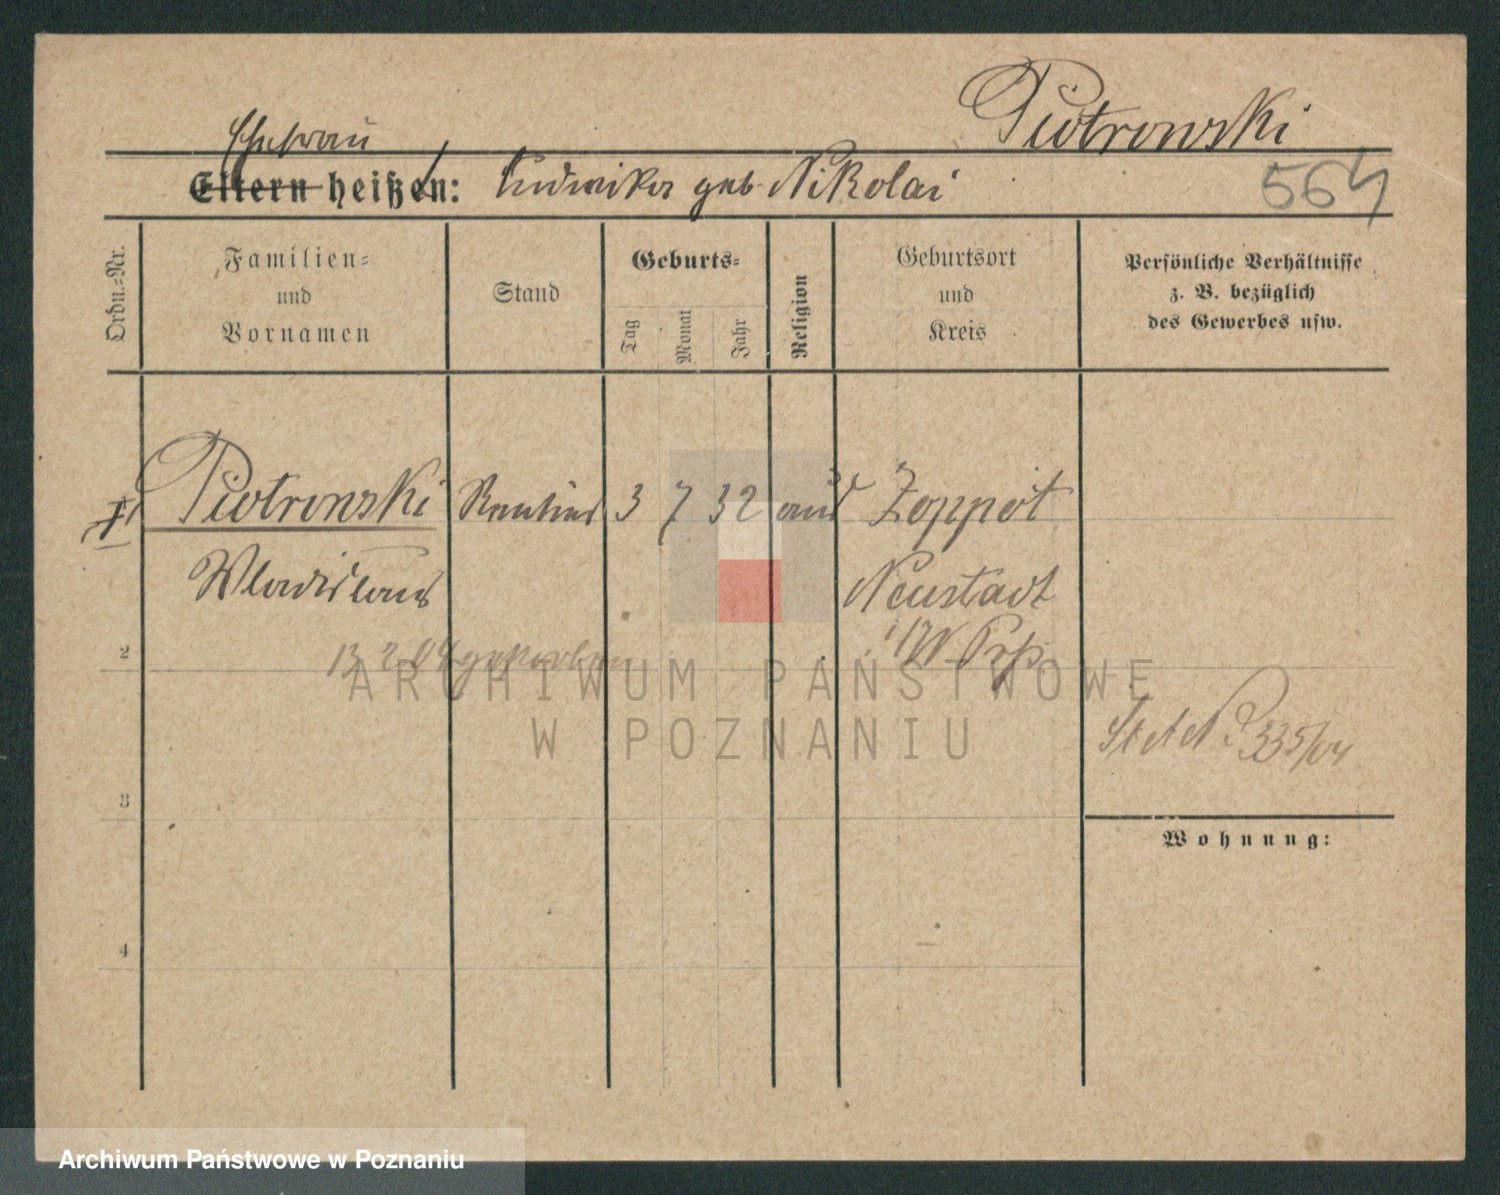 Piotrowski
Ehefrau
Eltern heißen: Ludwika geb. Nikolai
564
Ordn.-Nr.
Familien-
und
Vornamen
Stand
Geburts-
Tag
Monat
Jahr
Religion
Geburtsort
und
Kreis
Persönliche Verhältnisse
z. B. bezüglich
des Gewerbes usw.
Piotrowski Rentier 3 7 32 Zoppot
Wladislaus Neustadt
W Prß
2
13 2 04 gestorben
St A No 335/04
3
Wohnung:
4
ARCHIWUM PAŃSTWOWE
W POZNANIU
Archiwum Państwowe w Poznaniu